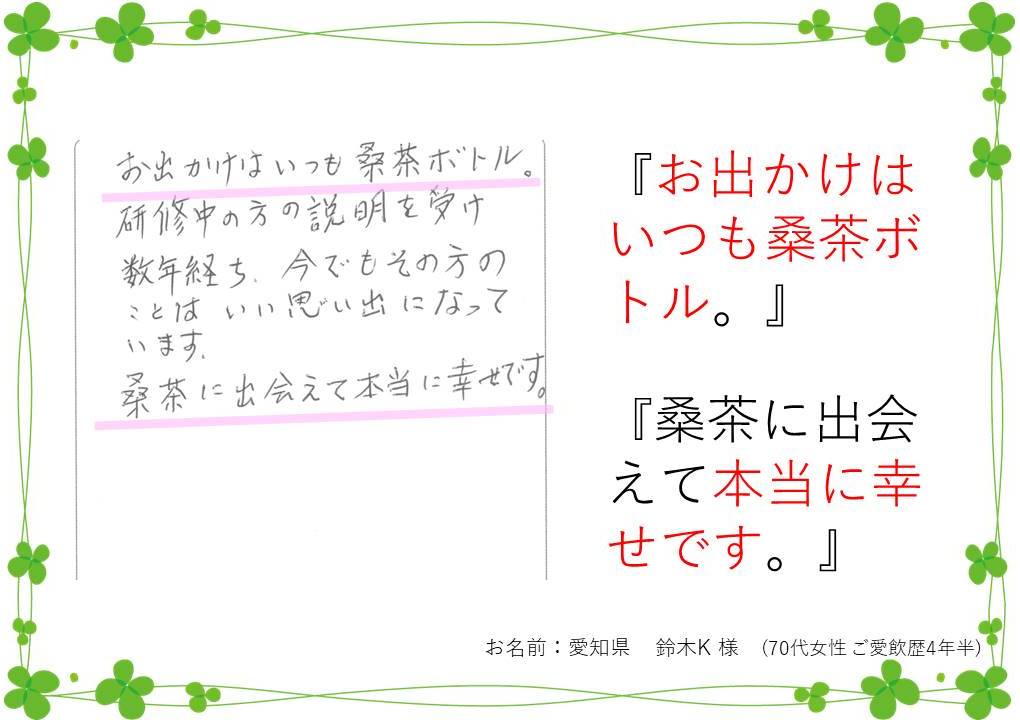 お出かけはいつも桑茶ボトル。
研修中の方の説明を受け
数年経ち、今でもその方の
ことは いい思い出になって
います。
桑茶に出会えて本当に幸せです。
『お出かけは
いつも桑茶ボ
トル。』
『桑茶に出会
えて本当に幸
せです。』
お名前：愛知県　鈴木K 様　(70代女性 ご愛飲歴4年半)